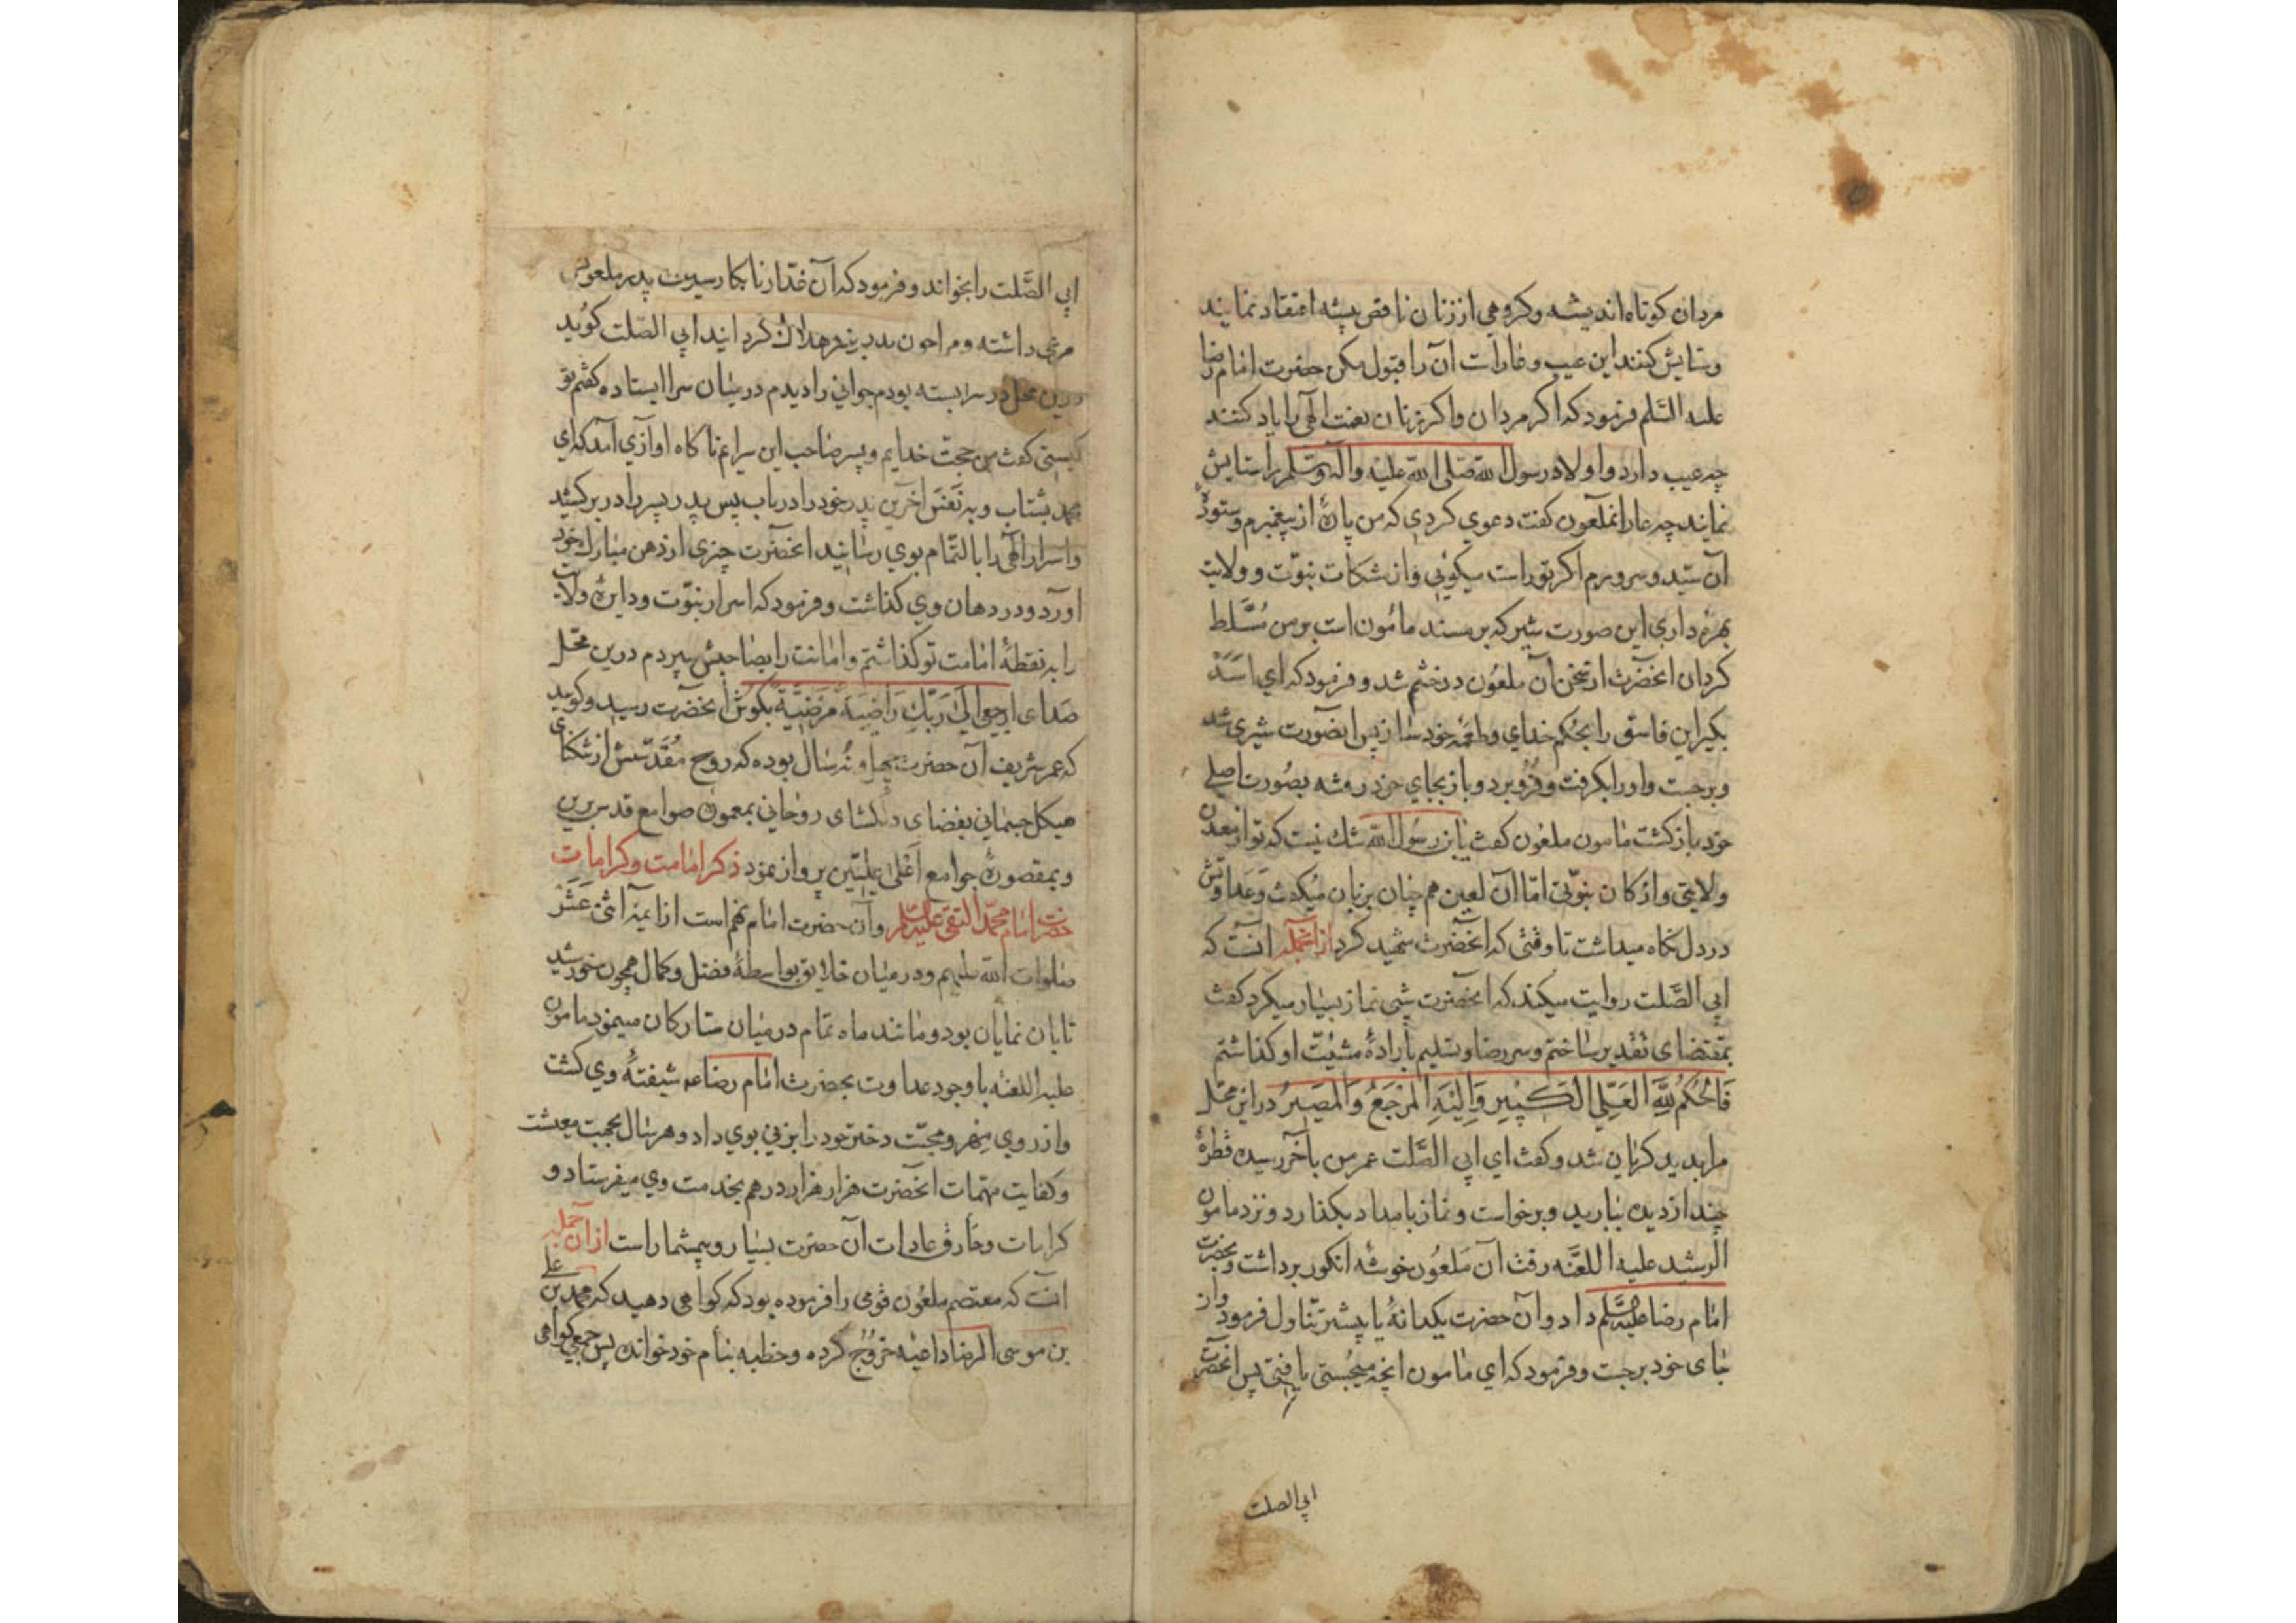 مردان کوتاه اندیشه وکروهی اززنان ناقص پیشه اعتقاد نمایند
وستایش کنند این عیب وعاراست آن را قبول مکن حضرت امام رضا
علیه السّلم فرمود که اکر مردان واکر زنان نعمت الهی را یاد کنند
چه عیب دارد واولاد رسول الله صلی الله علیه واله وسلم راستایش
نمایند چه عار انملعون کفت دعوی کردی که من پارۀ از پیغمبرم وستودۀ
آن سیّد وسرورم اکرتوراست میکوئی واز مشکات نبوّت وولایت
بهره داری این صورت شیر که بر مسند مامون است برمن مُسَّلط
کردان انحضرت ازسخن آن ملعُون درخشم شد و فرمود که ای اَسَدْ
بکیراین فاسق را بحُکم خدای وطعمۀ خود ساز پس انصورت شیری شد
وبرجست واورا بکرفت وفروبرد وباز بجای خود رفته بصُورت اصلی
خود بازکشت مامون ملعُون کفت یابن رسُول الله شك نیست که تواز معدن
ولایتی واز کان نبوّتی امّا آن لعین هم چنان بزبان میکفت وَعداوتش
دردل نکاه میداشت تا وقتی که انحضرت شهید کرد ازانجمله انست که
ابی الصَّلت روایت میکند که انحضرت شبی نماز بسیار میکرد کفت
بمقتضای تقدیر ساختم وسر رضا وتسلیم بارادۀ مشیّت او کذاشتم
فَالحُکمُ لِلّهِ العَلِّی الکَبیرِ وَاِلَیهِ المَرْجَعُ وَالمَصیرُ دراین محل
مرا بدید کریان شد وکفت ای ابی الصَّلت عمرمن بآخر رسید قطرۀ
چند ازدیده ببارید وبرخواست ونماز بامداد بکذارد ونزد مامون
الرشید علیه اللعَّنه رفت آن مَلعُون خوشه انکور برداشت وبحضرت
امام رضا علیه السّلم داد وآن حضرت یکدانۀ یا بیشتر تناول فرمود واز
جای خود برجست وفرمود که ای مامون انچه میجُستی یافتی پس انحضرت
ابی الصلت
ابی الصَّلت را بخواند وفرمود که آن غدّار نابکار سیرت پدر ملعونش
مرعی داشته ومرا چون پدر بزهر هلاك کردانید ابی الصّلت کوید
درین محل در سرا بسته بودم جوانی رادیدم درمیان سرا ایستاده کفتم تو
کیستی کفت من حجّت خدایم وپسر صاحب این سرایم ناکاه اوازی آمد که ای
محمد بشتاب وبه نَفَسَ اخَرین پدر خود را دریاب پس پدر پسر را دربر کشید
واسرار الهی را بالتّمام بوی رسانید انحضرت چیزی ازدهن مبارك خود
اورد ودر دهان وی کذاشت وفرمود که اسرار نبوّت ودایرۀ ولایت
را به نقطۀ امامت توکذاشتم وامانت رابصاحبش سپردم درین محل
صدای ارجعی اِلیٰ رَبِّكِ رَاضِیَةً مَرَضِیَّةً بکوش انحضرت رسید وکویند
که عمر شریف آن حضرت چهل ونُه سال بوده که روح مُقَدّسش از تنکنای
هیکل جسمانی بفضای دلکشای روحانی بمعمورۀ صوامع قدس برین
وبمقصورۀ جوامع اَعْلیٰ عِلیّین پرواز نمود ذکر امامت وکرامات
حضرت امام محمّد التقی علیه السّلم وآن حضرت امام نهم است ازایمۀ اثنیٰ عَشَرْ
صلوات الله علیهم ودرمیان خلایق بواسطۀ فضل وکمال همچون خورشید
تابان نمایان بود ومانند ماه تمام درمیان ستارکان مینمود مامون
علیه اللعنه باوجود عداوت بحضرت امام رضا عم شیفتۀ وی کشت
وازروی مهر ومحبّت دختر خود را بزنی بوی داد وهرسال بجهت معیشت
وکفایت مهمّات انحضرت هزار هزار درهم بخدمت وی میفرستاد و
کرامات وخارق عادات آن حضرت بسیار وبیشمار است ازان جمله
انست که معتصم ملعُون قومی را فرموده بود که کواهی دهید که محمد بن علی
بن موسی الرضا داعیه خروج کرده وخطبه بنام خود خوانده پس جمعی کواهی